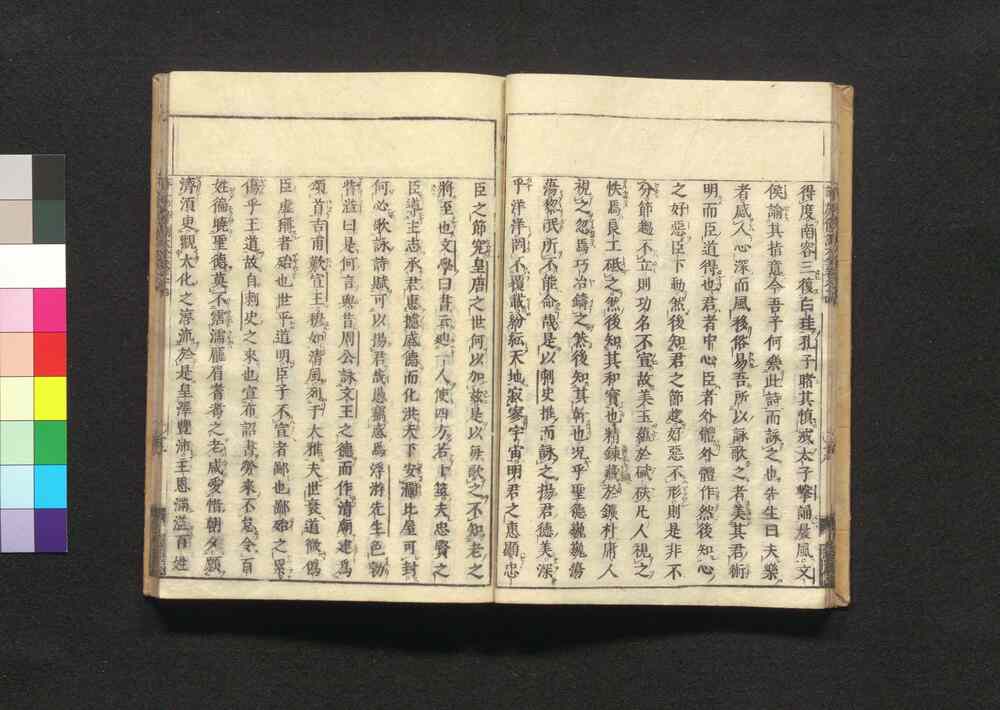 得度南容三復白珪孔子睹其慎戒太子擊誦晨風文
侯諭其指意今吾子何樂此詩而詠之也先生曰夫樂
者感人心深而風移俗易吾所以詠歌之者美其君術
明而臣道得也君者中心臣者外體外體作然後知心
之好惡臣下動然後知君之節趨好惡不形則是非不
分節趨不立則功名不宣故美玉蘊於碔砆凡人視之
怢焉良工砥之然後知其和寶也精鍊藏於鑛朴庸人
視之忽焉巧冶鑄之然後知其幹也況乎聖德巍巍蕩
蕩黎氓所不能命哉是以刺史推而詠之揚君德美深
乎洋洋罔不覆載紛紜天地寂寥宇宙明君之惠顯忠
臣之節究皇唐之世何以加兹是以每歌之不知老之
將至也文學曰書云迪一人使四方若卜筮夫忠賢之
臣導主志承君惠攄盛德而化洪天下安瀾比屋可封
何必歌詠詩賦可以揚君哉愚竊惑焉浮游先生色勃
眥溢曰是何言與昔周公詠文王之德而作清廟建爲
頌首吉甫歎宣王穆如清風列于大雅夫世衰道微僞
臣虛稱者殆也世平道明臣子不宣者鄙也鄙殆之累
傷乎王道故自刺史之來也宣布詔書勞來不怠令百
姓徧曉聖德莫不霑濡厖眉耆耇之老咸愛惜朝夕願
濟須臾觀大化之淳流於是皇澤豐沛主恩滿溢百姓